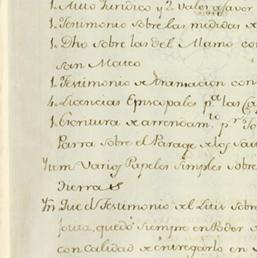 1. Auto Juridico y 2 Vales a favor
1. Testimonio sobre las medidas de
1. Dho sobre las del Alamo con
San Marco
1. Testimonio de transacion con
4. Licencias Episcopales pa. las
1. Escritura de arrendamto. pr.
Parra sobre el Parage de los
Ytem Varios Papeles Simples sobre
Tierras
Ytn Que el Testimonio del Luis sobre
quedó siempre en Poder
con Calidad de entregarlo en